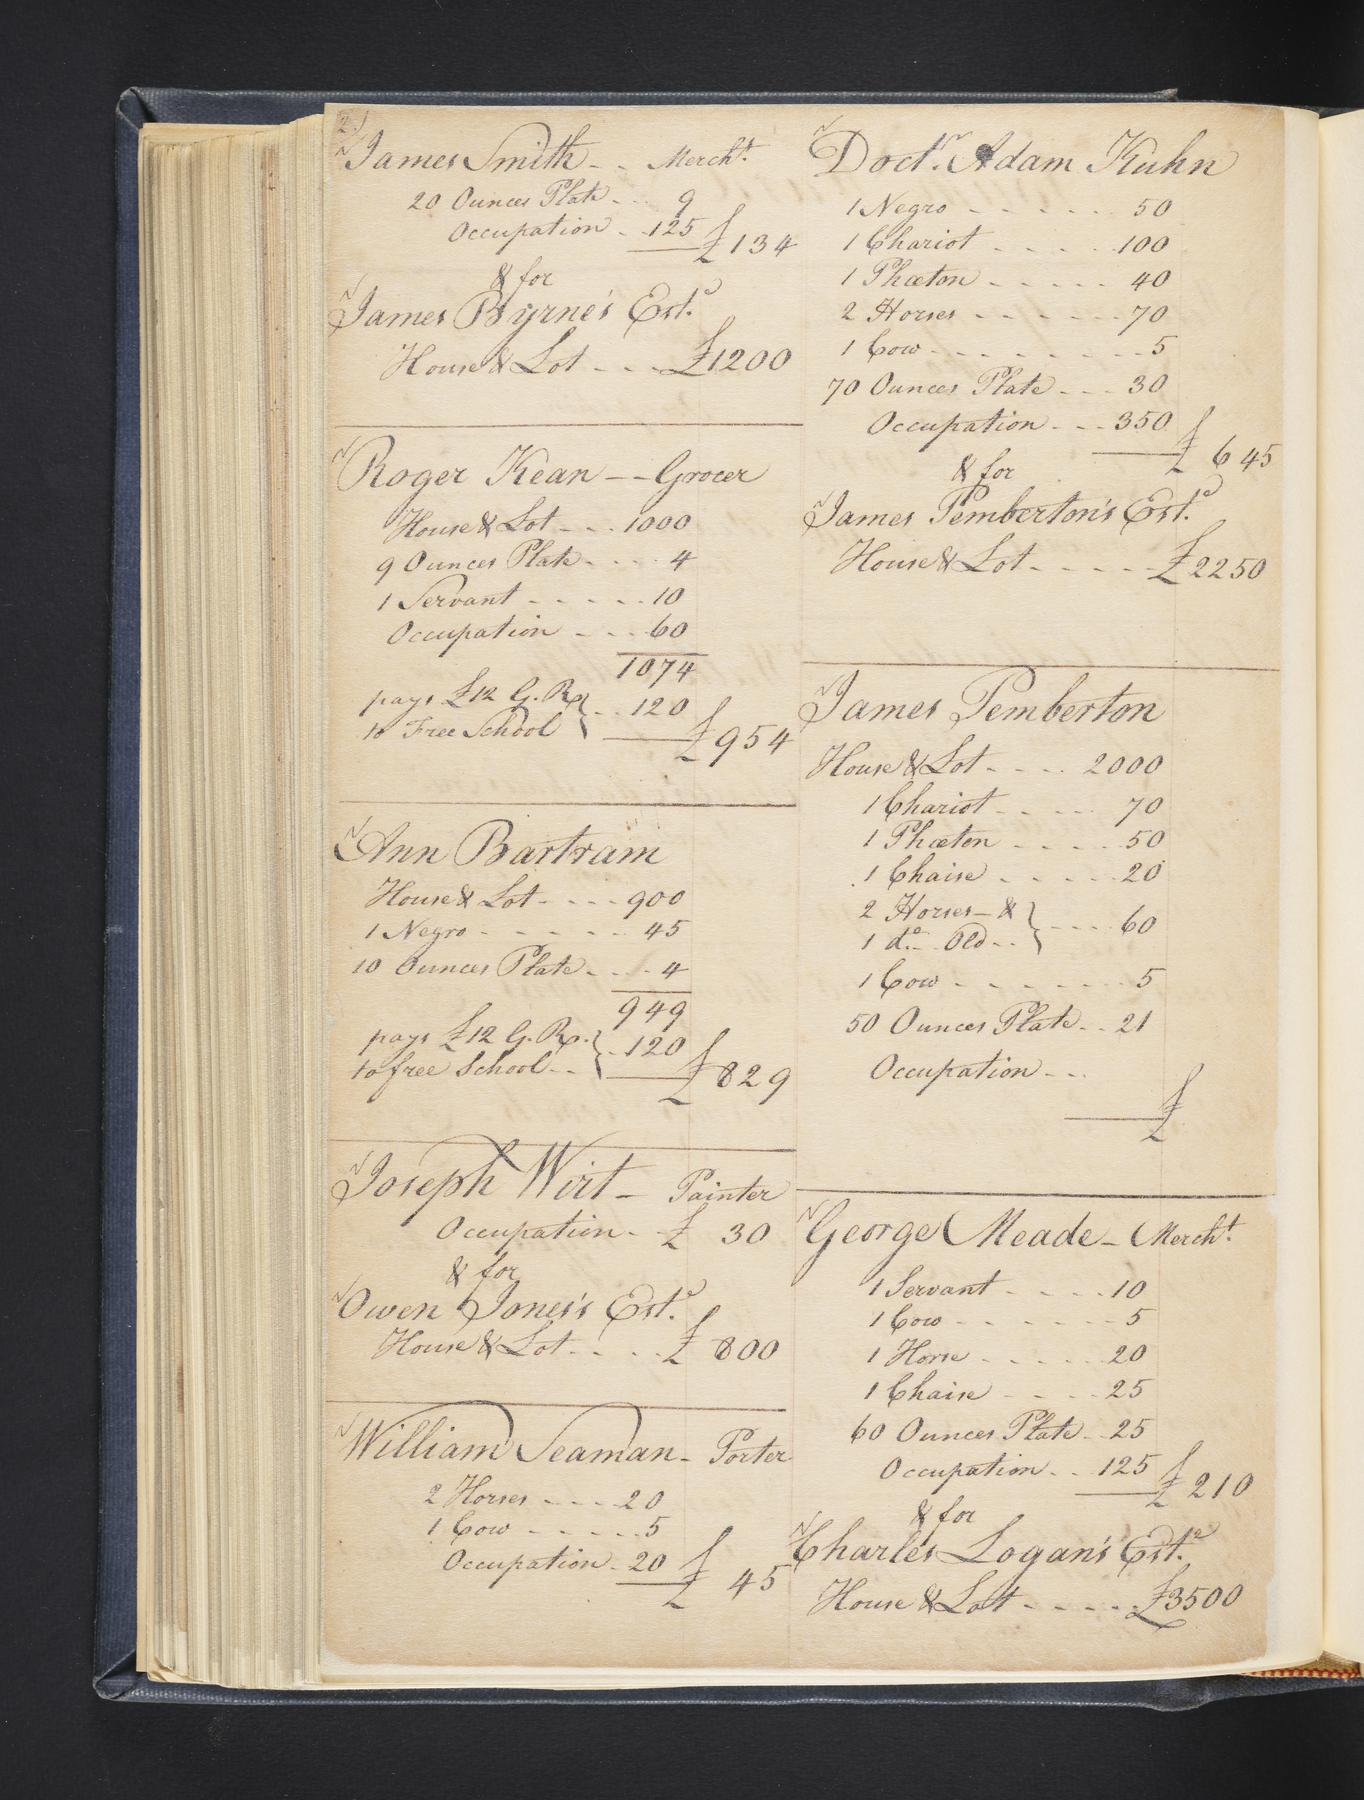 2)
James Smith - - Mercht.
20 Ounces Plate - - 9
Occupation - 125 £134
& for
James Byrne's Este.
House & Lot - - - £1200
Roger Kean - - Grocer
House & Lot - - - 1000
9 Ounces Plate - - - - 4
1 Servant - - - - - 10
Occupation - - - 60
1074
pays £12 G. R. } - - 120
to Free School £954
Ann Bartram
House & Lot - - - - 900
1 Negro - - - - - - 45
10 Ounces Plate - - - 4
949
pays £12 G. R. } - 120
to free School - - £829
Joseph Wirt - Painter
Occupation - - £ 30
& for
Owen Jones's Este.
House & Lot - - - - £ 800
William Seaman - Porter
2 Horses - - - - 20
1 Cow - - - - - 5
Occupation - 20 £ 45
Doctr. Adam Kuhn
1 Negro - - - - - 50
1 Chariot - - - - 100
1 Phæton - - - - - 40
2 Horses - - - - - - 70
1 Cow - - - - - - - - 5
70 Ounces Plate - - - 30
Occupation - - - 350
£ 645
& for
James Pemberton's Este.
House & Lot - - - - - £2250
James Pemberton
House & Lot - - - - 2000
1 Chariot - - - - 70
1 Phæton - - - - 50
1 Chaise - - - - - 20
2 Horses - & } - - - - 60
1 do. - Old - -
1 Cow - - - - - - - 5
50 Ounces Plate - - 21
Occupation - - -
£
George Meade - Mercht.
1 Servant - - - - 10
1 Cow - - - - - - - 5
1 Horse - - - - - 20
1 Chaise - - - - 25
60 Ounces Plate - - 25
Occupation - - 125 £210
& for
Charles Logan's Este.
House & Lott - - - - - £3500